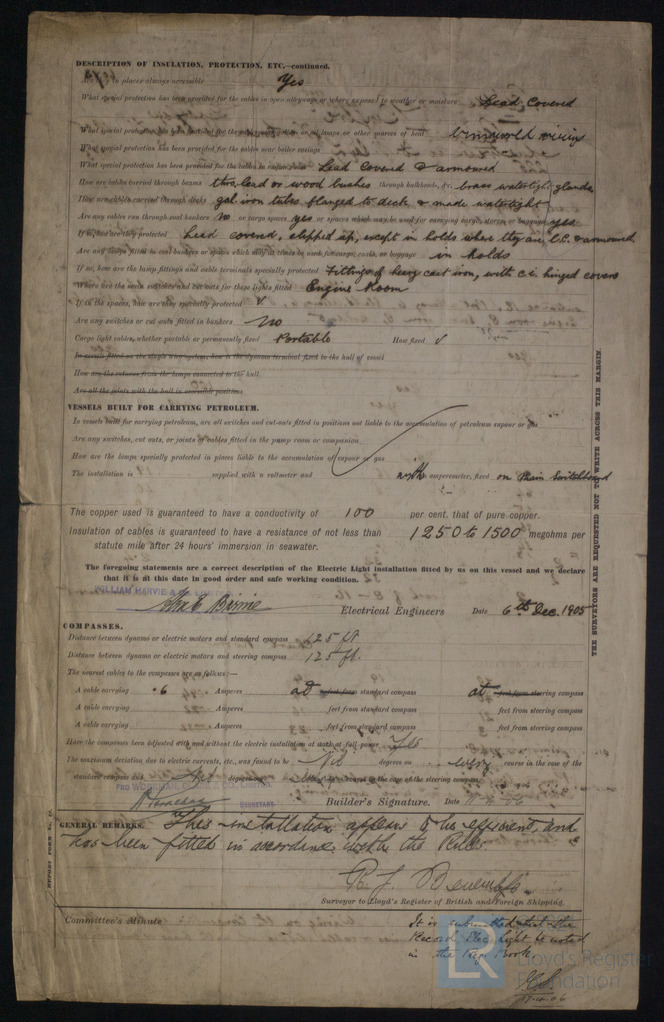 DESCRIPTION OF INSULATION, PROTECTION, ETC.—continued.
in places always accessible Yes
What special protection has been provided for the cables in open alleyways or where exposed to weather or moisture Lead Covered
What special protection has been provided for the cables near galleys or oil lamps or other sources of heat
What special protection has been provided for the cables near boiler casings
What special protection has been provided for the cables in engine room Lead Covered & armoured
How are cables carried through beams thro. lead or wood bushes through bulkheads, &c. brass watertight glands
How are cables carried through decks gal. iron tubes flanged to deck & made watertight
Are any cables run through coal bunkers No or cargo spaces yes or spaces which may be used for carrying cargo, stores, or baggage yes
If so, how are they protected Lead covered, clipped up, except in holds where they are L.C. & armoured
Are any lamps fitted in coal bunkers or spaces which may at times be used for cargo, coals, or baggage in holds
If so, how are the lamp fittings and cable terminals specially protected Fittings of heavy cast iron, with c.i. hinged covers
Where are the main switches and cut outs for these lights fitted Engine Room
If in the spaces, how are they specially protected √
Are any switches or cut outs fitted in bunkers No
Cargo light cables, whether portable or permanently fixed Portable How fixed √
In vessels fitted on the single wire system, how is the dynamo terminal fixed to the hull of vessel
How are the returns from the lamps connected to the hull
Are all the joints with the hull in accessible positions
VESSELS BUILT FOR CARRYING PETROLEUM.
In vessels built for carrying petroleum, are all switches and cut-outs fitted in positions not liable to the accumulation of petroleum vapour or gas
Are any switches, cut outs, or joints of cables fitted in the pump room or companion
How are the lamps specially protected in places liable to the accumulation of vapour or gas
The installation is supplied with a voltmeter and with amperemeter, fixed on Main Switchboard
The copper used is guaranteed to have a conductivity of 100 per cent. that of pure copper.
Insulation of cables is guaranteed to have a resistance of not less than 1250 to 1500 megohms per
statute mile after 24 hours' immersion in seawater.
The foregoing statements are a correct description of the Electric Light installation fitted by us on this vessel and we declare
that it is at this date in good order and safe working condition.
WILLIAM HARVIE &
Electrical Engineers Date 6th Dec. 1905
COMPASSES.
Distance between dynamo or electric motors and standard compass 125 ft
Distance between dynamo or electric motors and steering compass 125 ft.
The nearest cables to the compasses are as follows:—
A cable carrying ·6 Amperes at feet from standard compass at feet from steering compass
A cable carrying Amperes feet from standard compass feet from steering compass
A cable carrying Amperes feet from standard compass feet from steering compass
Have the compasses been adjusted with and without the electric installation at work at full power Yes
The maximum deviation due to electric currents, etc., was found to be Nil degrees on every course in the case of the
standard compass and Nil degrees on course in the case of the steering compass.
PRO LIMITED.
SECRETARY
Builder's Signature. Date
GENERAL REMARKS. This installation appears to be efficient, and
has been fitted in accordance with the Rules
Surveyor to Lloyd's Register of British and Foreign Shipping.
Committee's Minute It is submitted that the
Record, Elec. light be noted
in the Reg. Book
THE SURVEYORS ARE REQUESTED NOT TO WRITE ACROSS THIS MARGIN.
LR
Lloyd's Register
Foundation